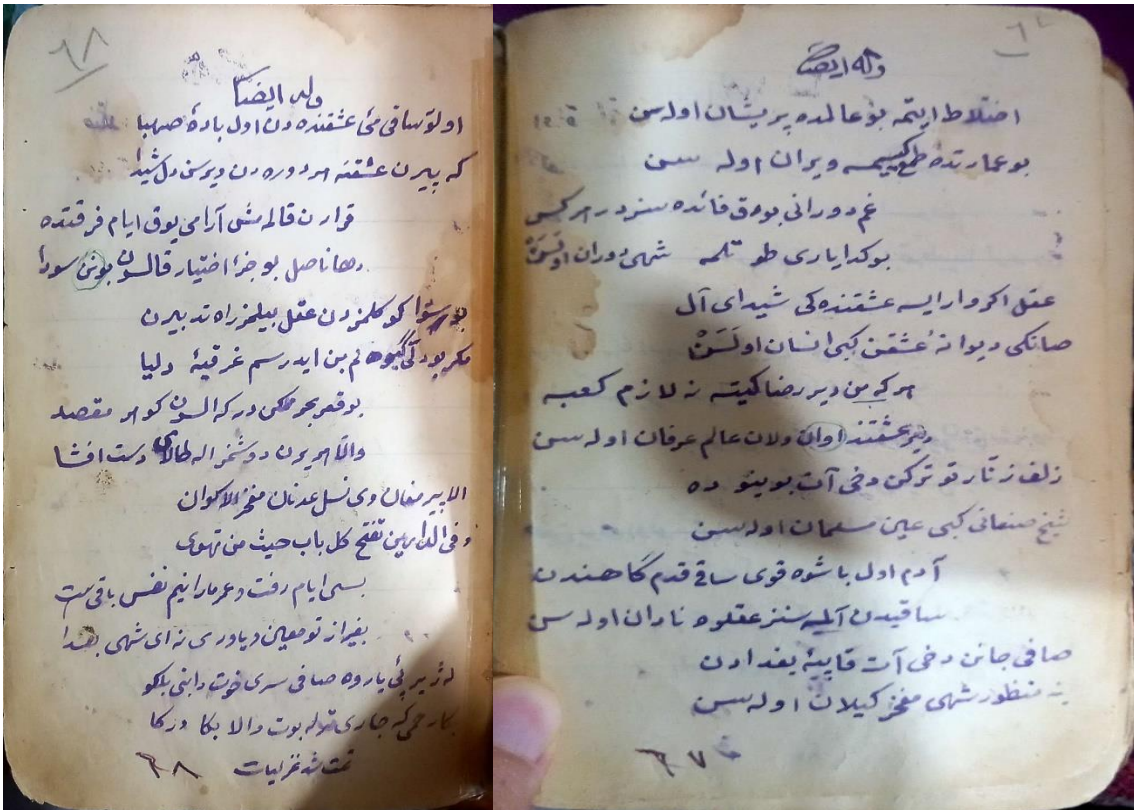 ٦٧
وله ایضا
اختلاط ایتمه بو عالمده پریشان اوله سن
بو عمارتده طمع کیمه ویران اوله سن
غم دورانی یوق فائده سنز در هرکس
بو کدایاری طو تلمه شهی دوران اولسن
عقل اکر وار ایسه عشقنده کی شیدای آل
صانکی دیوانهٔ عشقن کبی انسان اولسن
هر که من دیر رضا کیته نه لازم کعبه
دیر عشقنده اوان ولان عالم عرفان اوله سن
زلف زنار تو ترکن دخی آت بوینو ده
شیخ صنعانی کبی عین مسلمان اوله سن
آدم اول باشوه قوی ساقی قدم کاهندن
ساقیدن آیلیه سنز عقلوه نادان اوله سن
صافی جانن دخی آت قاپیهٔ بغدادن
منظور شهی مفخر کیلان اوله سن
٦٧
٦٨
وله ایضا
اولو ساقی مئ عشقنده دن اول بادهٔ صهبا
که پیرن عشقنه هر دوره دن ویرسن دل شیدا
قرارن قالمه مش آرامی یوق ایام فرقتده
دها ناصل بو جزء اختیار قالسون بونن سودا
بو سودا کو کلمزدن عقل بیلمز راه تدبیرن
لم بن ایدرسم غرقیهٔ دلیا
بو قعر بحر ممکن در که السون کو هر مقصد
والا هر یرن دوشمز اله دست افشا
الا پیر مغان وی نسل عدنان مفخر الاکوان
وفی الدارین تفتح کل باب حیث من تهوی
بسی ایام رفت و عرمارا نیم نفس باقی ست
بغیر از تو معین ویاوری نه ای شهی بغدا
له ژیر پئی یاروه صافی سری خوت دابنی بلکو
رحمی که جاری له بوت والا بکا ورکا
تمت شد غزلیات
٦٨